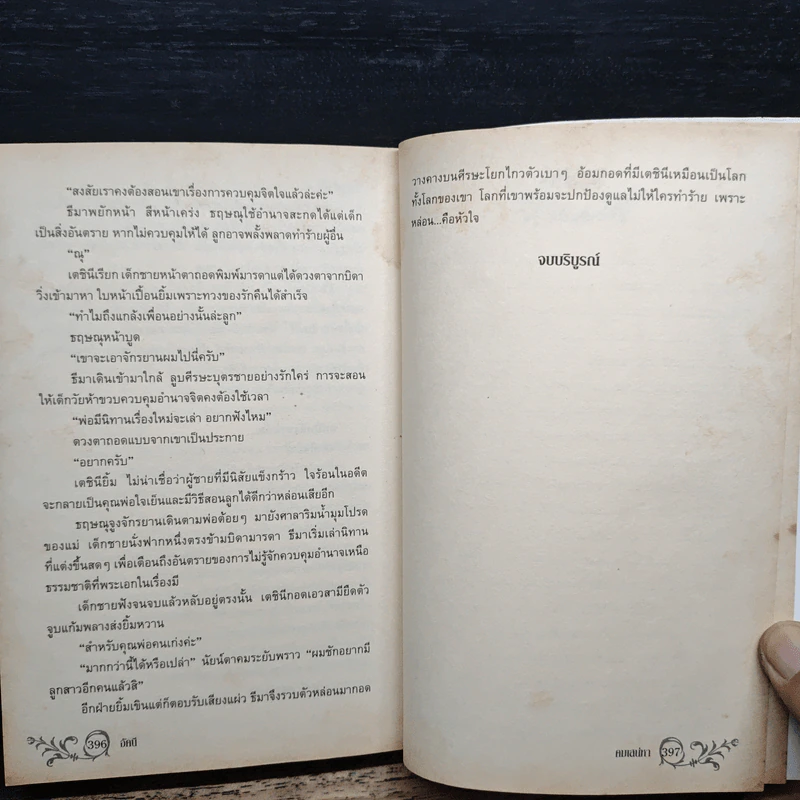 “สงสัยเราคงต้องสอนเขาเรื่องการควบคุมจิตใจแล้วล่ะค่ะ”
ธีมาพยักหน้า สีหน้าเคร่ง ธฤษณุใช้อำนาจสะกดได้แต่เด็ก
เป็นสิ่งอันตราย หากไม่ควบคุมให้ได้ ลูกอาจพลั้งพลาดทำร้ายผู้อื่น
“ณุ”
เตชินีเรียก เด็กชายหน้าตาถอดพิมพ์มารดาแต่ได้ดวงตาจากบิดา
วิ่งเข้ามาหา ใบหน้าเปื้อนยิ้มเพราะทวงของรักคืนได้สำเร็จ
“ทำไมถึงแกล้งเพื่อนอย่างนั้นล่ะลูก”
ธฤษณุหน้าบูด
“เขาจะเอาจักรยานผมไปนี่ครับ”
ธีมาเดินเข้ามาใกล้ ลูบศีรษะบุตรชายอย่างรักใคร่ การจะสอน
ให้เด็กวัยห้าขวบควบคุมอำนาจจิตคงต้องใช้เวลา
“พ่อมีนิทานเรื่องใหม่จะเล่า อยากฟังไหม”
ดวงตาถอดแบบจากเขาเป็นประกาย
“อยากครับ”
เตชินียิ้ม ไม่น่าเชื่อว่าผู้ชายที่มีนิสัยแข็งกร้าว ใจร้อนในอดีต
จะกลายเป็นคุณพ่อใจเย็นและมีวิธีสอนลูกได้ดีกว่าหล่อนเสียอีก
ธฤษณุจูงจักรยานเดินตามพ่อต้อยๆ มายังศาลาริมน้ำมุมโปรด
ของแม่ เด็กชายนั่งฟากหนึ่งตรงข้ามบิดามารดา ธีมาเริ่มเล่านิทาน
ที่แต่งขึ้นสดๆ เพื่อเตือนถึงอันตรายของการไม่รู้จักควบคุมอำนาจเหนือ
ธรรมชาติที่พระเอกในเรื่องมี
เด็กชายฟังจนจบแล้วหลับอยู่ตรงนั้น เตชินีกอดเอวสามียืดตัว
จูบแก้มพลางส่งยิ้มหวาน
“สำหรับคุณพ่อคนเก่งค่ะ”
“มากกว่านี้ได้หรือเปล่า” นัยน์ตาคมระยับพราว “ผมชักอยากมี
ลูกสาวอีกคนแล้วสิ”
อีกฝ่ายยิ้มเขินแต่ก็ตอบรับเสียงแผ่ว ธีมาจึงรวบตัวหล่อนมากอด
396 อัคนี
วางคางบนศีรษะโยกไกวตัวเบาๆ อ้อมกอดที่มีเตชินีเหมือนเป็นโลก
ทั้งโลกของเขา โลกที่เขาพร้อมจะปกป้องดูแลไม่ให้ใครทำร้าย เพราะ
หล่อน...คือหัวใจ
จบบริบูรณ์
คมเสน่หา 397